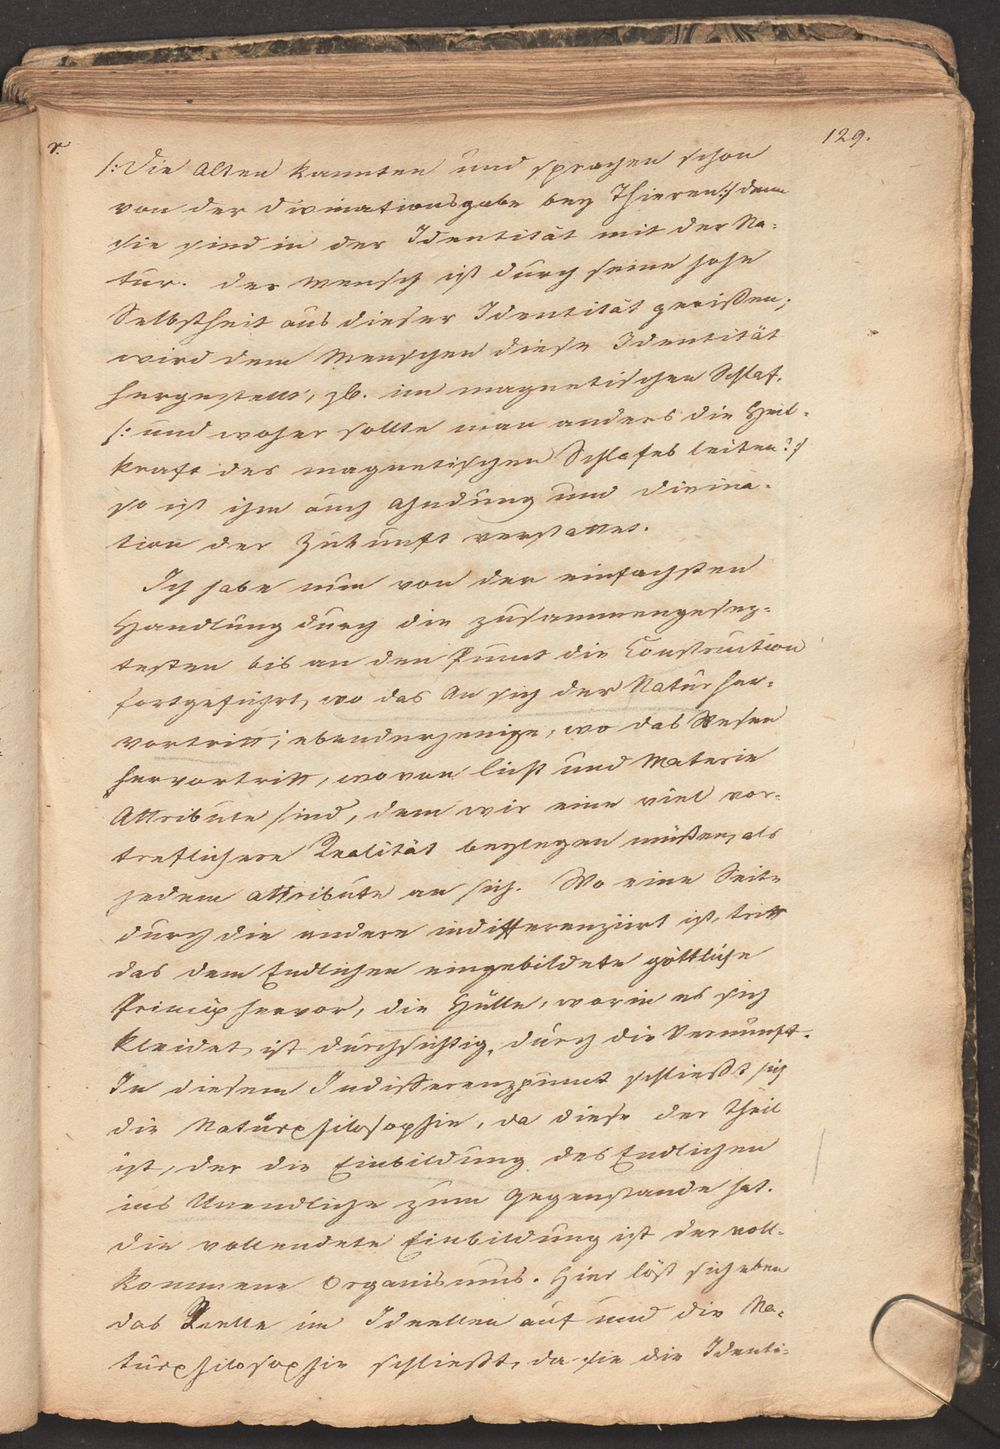 129.
/: Die Alten kannten und sprachen schon
von der Divinationsgabe bey Thieren :/ denn
sie sind in der Identität mit der Na-
tur. der Mensch ist durch seine hohe
Selbstheit aus dieser Identität gerißen;
wird dem Menschen diese Identität
hergestellt, zb. im magnetischen Schlaf.
/: und woher sollte man anders die Heil-
kraft des magnetischen Schlafes leiten? :/
so ist ihm auch Ahndung und Divina-
tion der Zukunft verstattet.
Ich habe nun von der einfachsten
Handlung durch die zusammengesez-
testen bis an den Punct die Construction
fortgeführt, wo das An sich der Natur her-
vortritt; ebenderjenige, wo das Wesen
hervortritt, wovon Licht und Materie
Attribute sind, dem wir eine viel vor-
treflichere Realität beylegen müßen, als
jedem Attribute an sich. Wo eine Seite
durch die andere indifferenziirt ist, tritt
das dem Endlichen eingebildete göttliche
Princip hervor, die Hülle, worin es sich
kleidet, ist durchsichtig, durch die Vernunft.
In diesem Indifferenzpunct schließt sich
die Naturphilosophie, da diese der Theil
ist, der die Einbildung des Endlichen
ins Unendliche zum Gegenstande hat.
die vollendete Einbildung ist der voll-
kommene Organismus. Hier löst sich eben
das Reelle im Ideellen auf und die Na-
turphilosophie schließt, da sie die Identi-